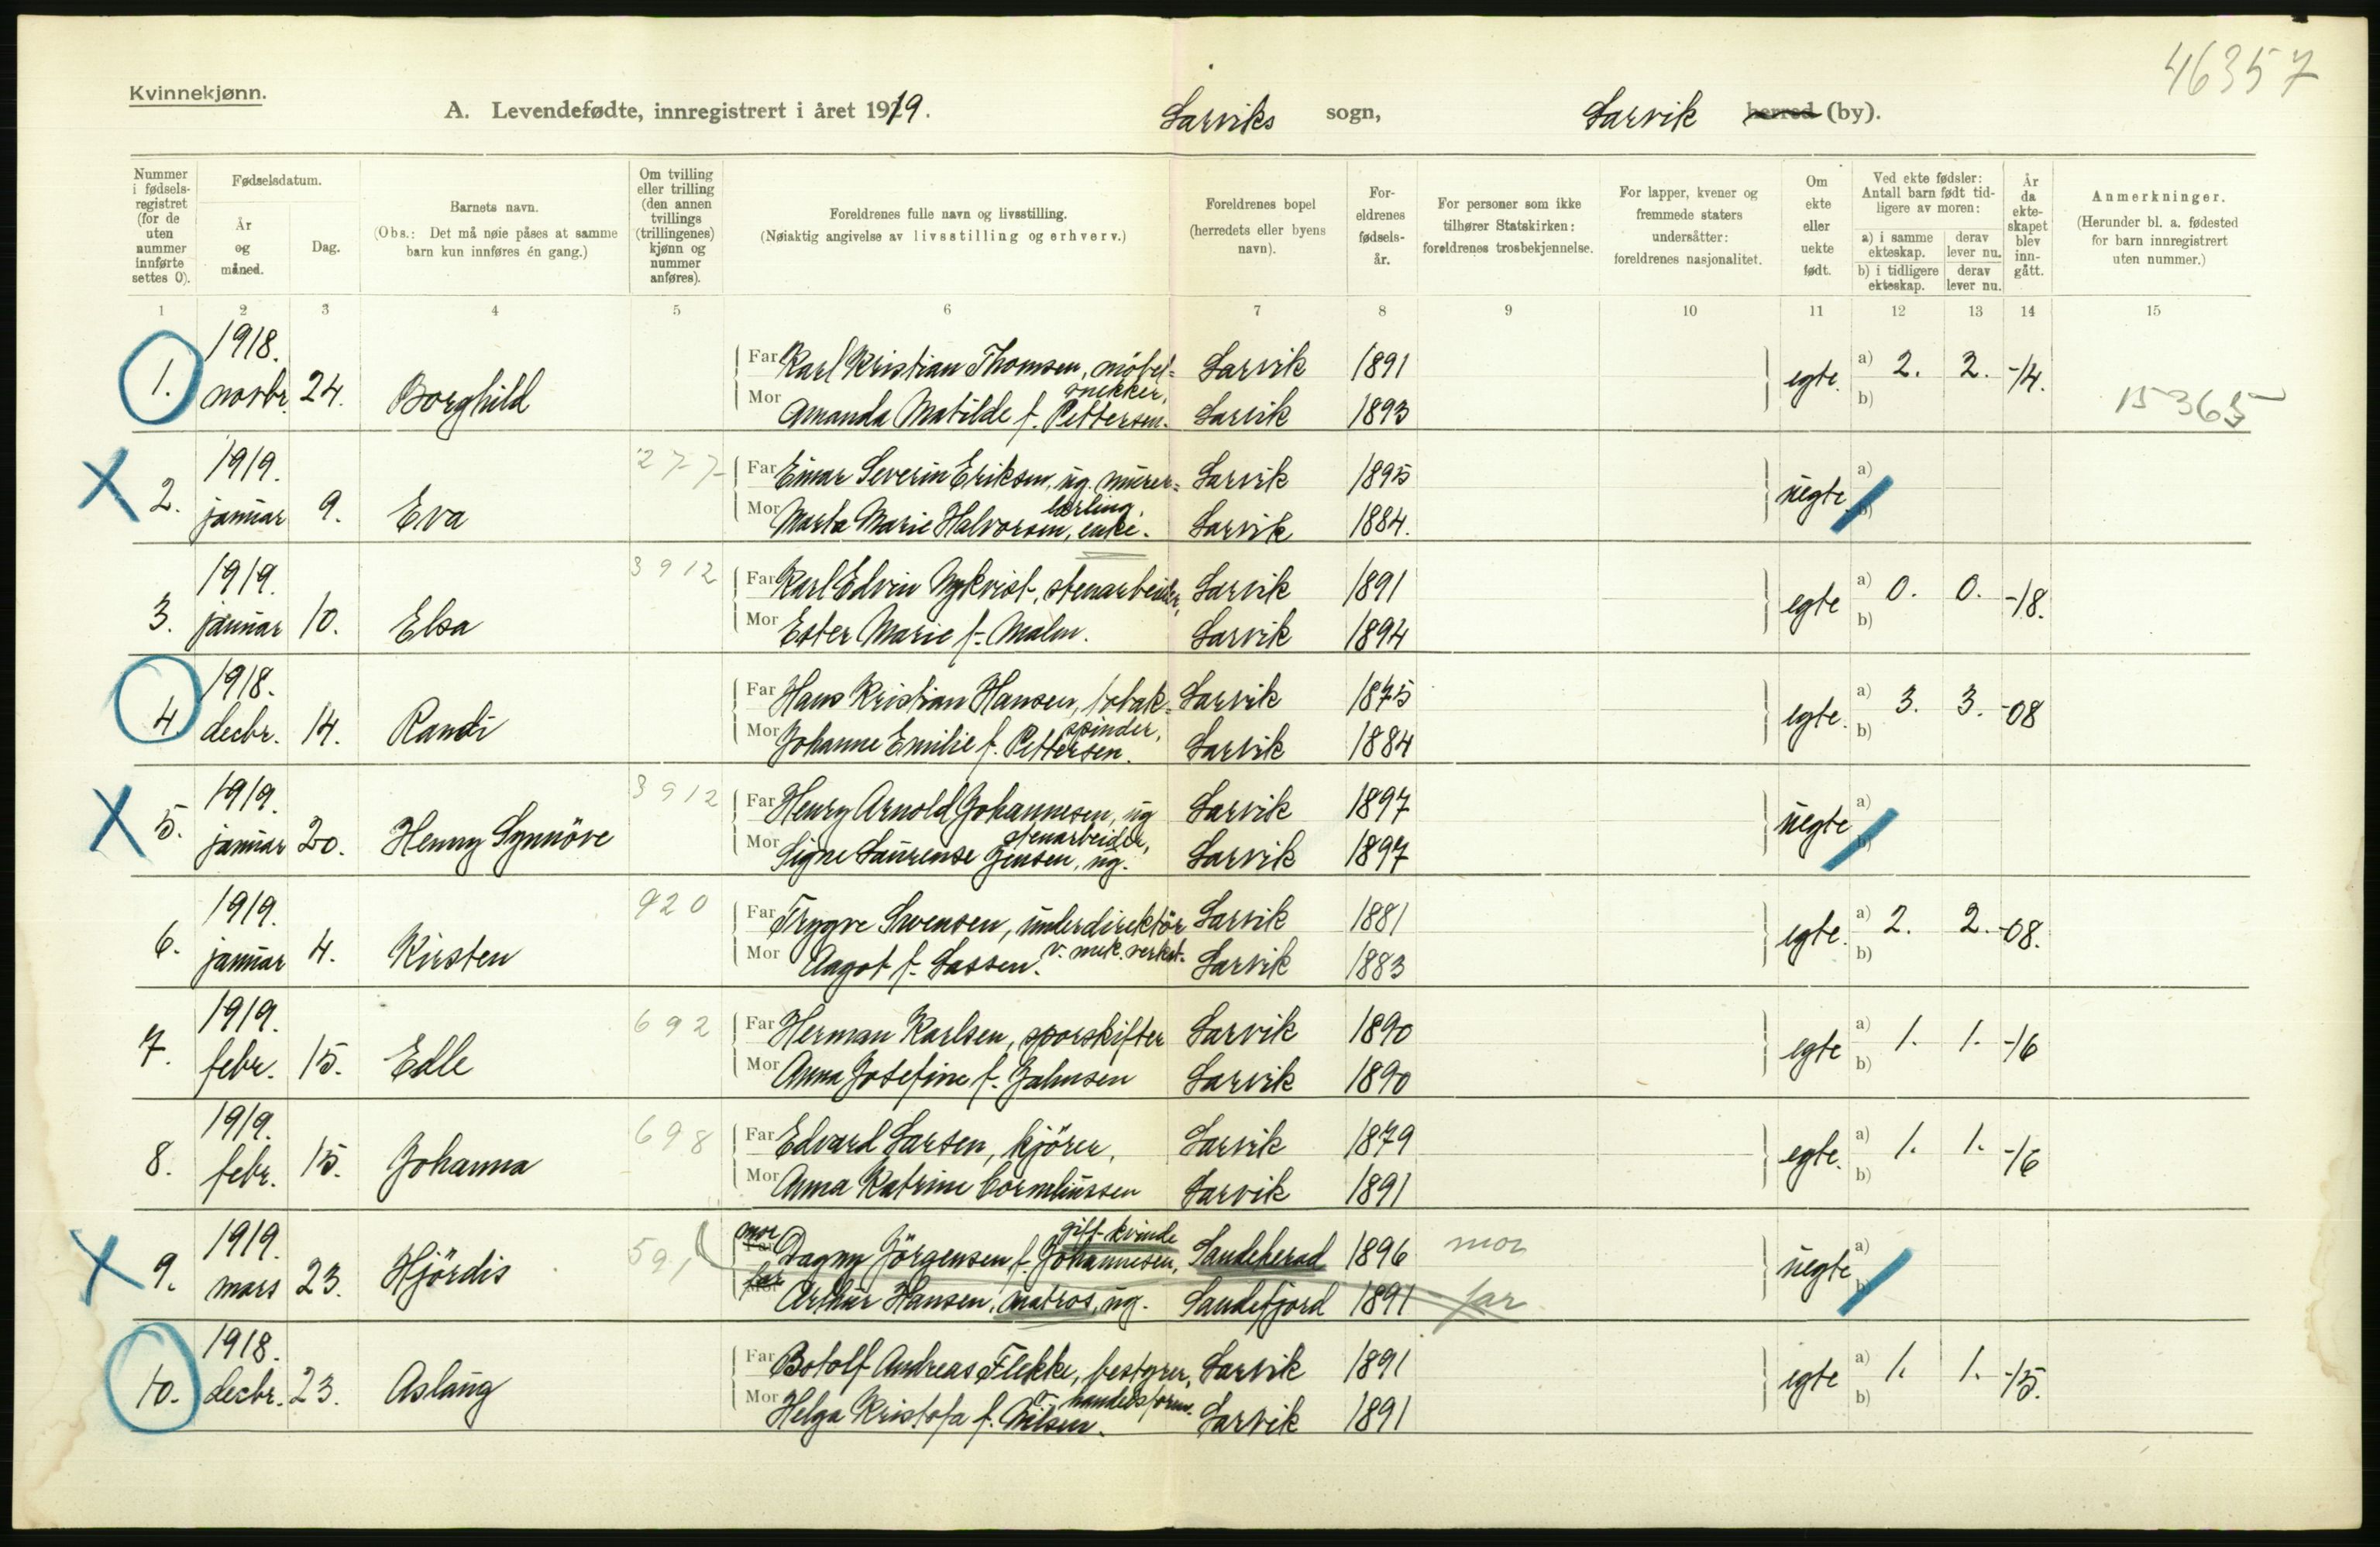 46357
Kvinnekjønn.
A. Levendefødte, innregistrert i året 1919. Larviks sogn, Larvik herred (by).
Nummer i fødselsregistret (for de uten nummer innførte settes 0).
Fødselsdatum.
År og måned.
Dag.
Barnets navn.
(Obs.: Det må nøie påses at samme barn kun innføres én gang.)
Om tvilling eller trilling (den annen tvillings (trillingenes) kjønn og nummer anføres).
Foreldrenes fulle navn og livsstilling.
(Nøiaktig angivelse av livsstilling og erhverv.)
Foreldrenes bopel
(herredets eller byens navn).
Foreldrenes fødselsår.
For personer som ikke tilhører Statskirken: foreldrenes trosbekjennelse.
For lapper, kvener og fremmede staters undersåtter: foreldrenes nasjonalitet.
Om ekte eller uekte født.
Ved ekte fødsler: Antall barn født tidligere av moren:
a) i samme ekteskap. derav lever nu.
b) i tidligere ekteskap. derav lever nu.
År da ekteskapet blev inngått.
Anmerkninger.
(Herunder bl. a. fødested for barn innregistrert uten nummer.)
1 2 3 4 5 6 7 8 9 10 11 12 13 14 15
1. 1918. novbr. 24. Borghild
Far Karl Kristian Thomsen, möbelsnekker, Larvik 1891 egte. a) 2. 2. -14. 15365
Mor Amanda Matilde f. Pettersen. Larvik 1893 b)
X 2. 1919. januar 9. Eva 277
Far Einar Severin Eriksen, ug. murerlærling, Larvik 1895 uegte a)
Mor Marta Marie Halvorsen, enke. Larvik 1884. b)
3. 1919. januar 10. Elsa 3912
Far Karl Edvin Nykvist, stenarbeider, Larvik 1891 egte a) 0. 0. -18.
Mor Ester Marie f. Malm. Larvik 1894 b)
4. 1918. decbr. 14. Randi
Far Hans Kristian Hansen, tobakspinder, Larvik 1875 egte. a) 3. 3. -08
Mor Johanne Emilie f. Pettersen. Larvik 1884 b)
X 5. 1919. januar 20. Henny Synnöve 3912
Far Henry Arnold Johannesen, ug stenarbeider, Larvik 1897 uegte a)
Mor Signe Laurense Jensen, ug. Larvik 1897 b)
6. 1919. januar 4. Kirsten 920
Far Trygve Svensen, underdirektör v. mek. verkst. Larvik 1881 egte. a) 2. 2. -08.
Mor Aagot f. Lassen. Larvik 1883 b)
7. 1919. febr. 15. Edle 692
Far Herman Karlsen, sporskifter Larvik 1890 egte a) 1. 1. -16
Mor Anna Josefine f. Jahnsen Larvik 1890 b)
8. 1919. febr. 15. Johanna 698
Far Edvard Larsen, kjörer, Larvik 1879 egte. a) 1. 1. -16
Mor Anna Katrine Corneliussen Larvik 1891 b)
X 9. 1919. mars 23. Hjördis 59,1
mor Far Dagny Jörgensen f. Johannesen, gift kvinde Sandeherad 1896 mor uegte a)
far Mor Arthur Hansen, matros, ug. Sandefjord 1891 far b)
10. 1918. decbr. 23. Aslaug
Far Botolf Andreas Flekke, bestyrer, handelsforen. Larvik 1891 egte a) 1. 1. -15.
Mor Helga Kristofa f. Nilsen. Larvik 1891 b)